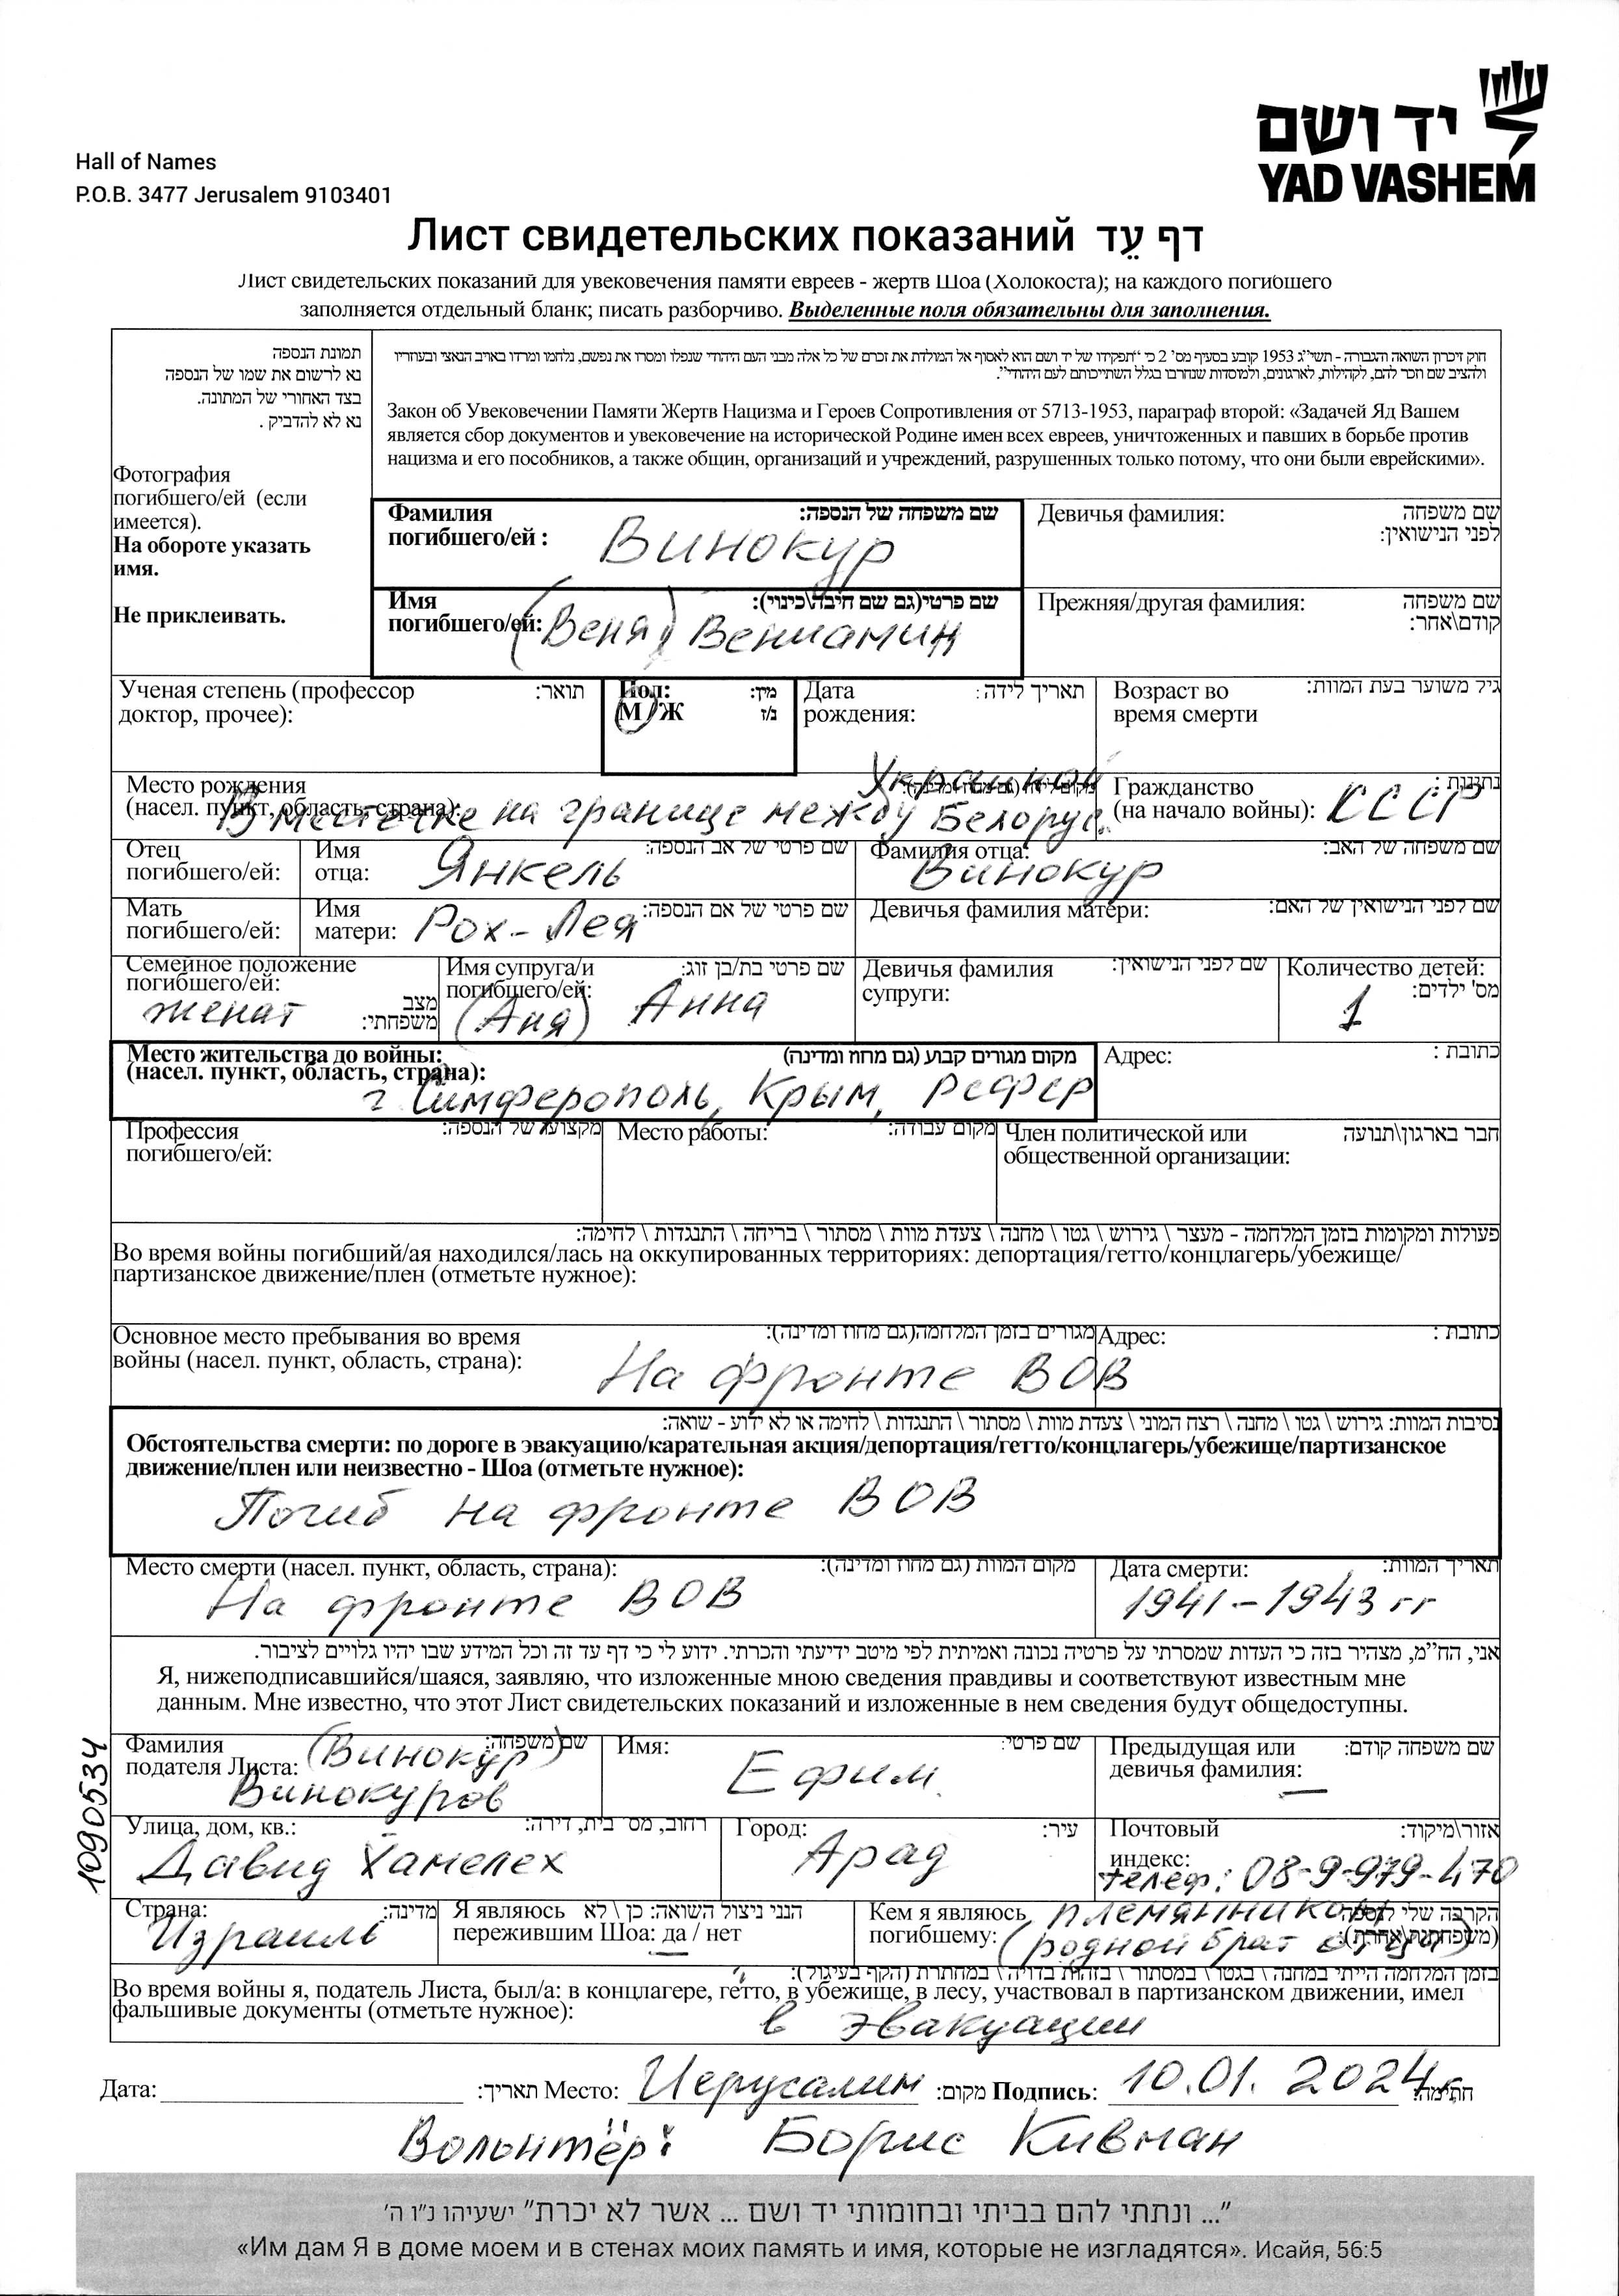 יד ושם
YAD VASHEM
Hall of Names
P.O.B. 3477 Jerusalem 9103401
Лист свидетельских показаний דף עֵד
Лист свидетельских показаний для увековечения памяти евреев - жертв Шоа (Холокоста); на каждого погибшего
заполняется отдельный бланк; писать разборчиво. Выделенные поля обязательны для заполнения.
תמונת הנספה
נא לרשום את שמו של הנספה
בצד האחורי של המתונה.
נא לא להדביק .
Фотография
погибшего/ей (если
имеется).
На обороте указать
имя.
Не приклеивать.
חוק זיכרון השואה והגבורה - תשי"ג 1953 קובע בסעיף מס' 2 כי "תפקידו של יד ושם הוא לאסוף אל המולדת את זכרם של כל אלה מבני העם היהודי שנפלו ומסרו את נפשם, נלחמו ומרדו באויב הנאצי ובעוזריו
ולהציב שם וזכר להם, לקהילות, לארגונים, ולמוסדות שנחרבו בגלל השתייכותם לעם היהודי".
Закон об Увековечении Памяти Жертв Нацизма и Героев Сопротивления от 5713-1953, параграф второй: «Задачей Яд Вашем
является сбор документов и увековечение на исторической Родине имен всех евреев, уничтоженных и павших в борьбе против
нацизма и его пособников, а также общин, организаций и учреждений, разрушенных только потому, что они были еврейскими».
Фамилия שם משפחה של הנספה:
погибшего/ей : Винокур
Девичья фамилия: שם משפחה
לפני הנישואין:
Имя שם פרטי(גם שם חיבה\כינוי):
погибшего/ей: (Веня) Вениамин
Прежняя/другая фамилия: שם משפחה
קודם\אחר:
Ученая степень (профессор תואר:
доктор, прочее):
Пол: מין:
М / Ж ז/נ
Дата תאריך לידה:
рождения:
Возраст во גיל משוער בעת המוות:
время смерти
Место рождения
(насел. пункт, область, страна):
Украиной
В местечке на границе между Белорус.
Гражданство נתינות :
(на начало войны): СССР
Отец
погибшего/ей:
Имя שם פרטי של אב הנספה:
отца: Янкель
Фамилия отца: שם משפחה של האב:
Винокур
Мать
погибшего/ей:
Имя שם פרטי של אם הנספה:
матери: Рох-Лея
Девичья фамилия матери: שם לפני הנישואין של האם:
Семейное положение
погибшего/ей:
женат
מצב
משפחתי:
Имя супруга/и שם פרטי בת/בן זוג:
погибшего/ей:
(Аня) Анна
Девичья фамилия שם לפני הנישואין:
супруги:
Количество детей:
מס' ילדים:
1
Место жительства до войны: מקום מגורים קבוע (גם מחוז ומדינה)
(насел. пункт, область, страна):
г. Симферополь, Крым, РСФСР
Адрес: כתובת :
Профессия מקצועו של הנספה:
погибшего/ей:
Место работы: מקום עבודה:
Член политической или חבר בארגון\תנועה
общественной организации:
פעולות ומקומות בזמן המלחמה - מעצר \ גירוש \ גטו \ מחנה \ צעדת מוות \ מסתור \ בריחה \ התנגדות \ לחימה:
Во время войны погибший/ая находился/лась на оккупированных территориях: депортация/гетто/концлагерь/убежище/
партизанское движение/плен (отметьте нужное):
Основное место пребывания во время מגורים בזמן המלחמה(גם מחוז ומדינה):
войны (насел. пункт, область, страна): На фронте ВОВ
Адрес: כתובת :
נסיבות המוות: גירוש \ גטו \ מחנה \ רצח המוני \ צעדת מוות \ מסתור \ התנגדות \ לחימה או לא ידוע - שואה:
Обстоятельства смерти: по дороге в эвакуацию/карательная акция/депортация/гетто/концлагерь/убежище/партизанское
движение/плен или неизвестно - Шоа (отметьте нужное):
Погиб на фронте ВОВ
Место смерти (насел. пункт, область, страна): מקום המוות (גם מחוז ומדינה):
На фронте ВОВ
Дата смерти: תאריך המוות:
1941-1943 гг
אני, הח"מ, מצהיר בזה כי העדות שמסרתי על פרטיה נכונה ואמיתית לפי מיטב ידיעתי והכרתי. ידוע לי כי דף עד זה וכל המידע שבו יהיו גלויים לציבור.
Я, нижеподписавшийся/шаяся, заявляю, что изложенные мною сведения правдивы и соответствуют известным мне
данным. Мне известно, что этот Лист свидетельских показаний и изложенные в нем сведения будут общедоступны.
1090534
Фамилия שם משפחה:
подателя Листа: (Винокур)
Винокуров
Имя: שם פרטי:
Ефим
Предыдущая или שם משפחה קודם:
девичья фамилия: —
Улица, дом, кв.: רחוב, מס' בית, דירה:
Давид Хамелех
Город: עיר:
Арад
Почтовый אזור\מיקוד:
индекс:
телеф: 08-9-979-470
Страна: מדינה:
Израиль
Я являюсь הנני ניצול השואה: כן \ לא
пережившим Шоа: да / нет
Кем я являюсь הקרבה שלי לנספה
погибшему: (משפחתית\אחרת):
племянником
(родной брат отца)
בזמן המלחמה הייתי במחנה \ בגטו \ במסתור \ בזהות בדויה \ במחתרת (הקף בעיגול):
Во время войны я, податель Листа, был/а: в концлагере, гетто, в убежище, в лесу, участвовал в партизанском движении, имел
фальшивые документы (отметьте нужное): в эвакуации
Дата: תאריך: Место: Иерусалим מקום: Подпись: 10.01.2024г. חתימה:
Волонтёр: Борис Кивман
"... ונתתי להם בביתי ובחומותי יד ושם ... אשר לא יכרת" ישעיהו נ"ו ה'
«Им дам Я в доме моем и в стенах моих память и имя, которые не изгладятся». Исайя, 56:5